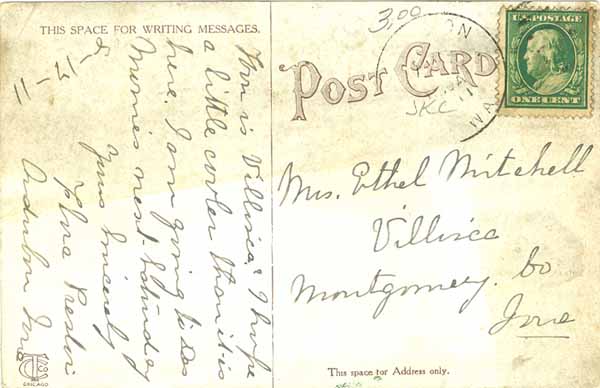 THIS SPACE FOR WRITING MESSAGES.
How is Villisca? I hope
a little cooler than it is
here. I am going to Des
Moines next Saturday
Yours Sincerely
Preston
Audubon Iowa
POST CARD
3,00
JKC
U.S. POSTAGE
ONE CENT
Mrs. Ethel Mitchell
Villisca
Montgomery. Co
Iowa
This space for Address only.
CHICAGO